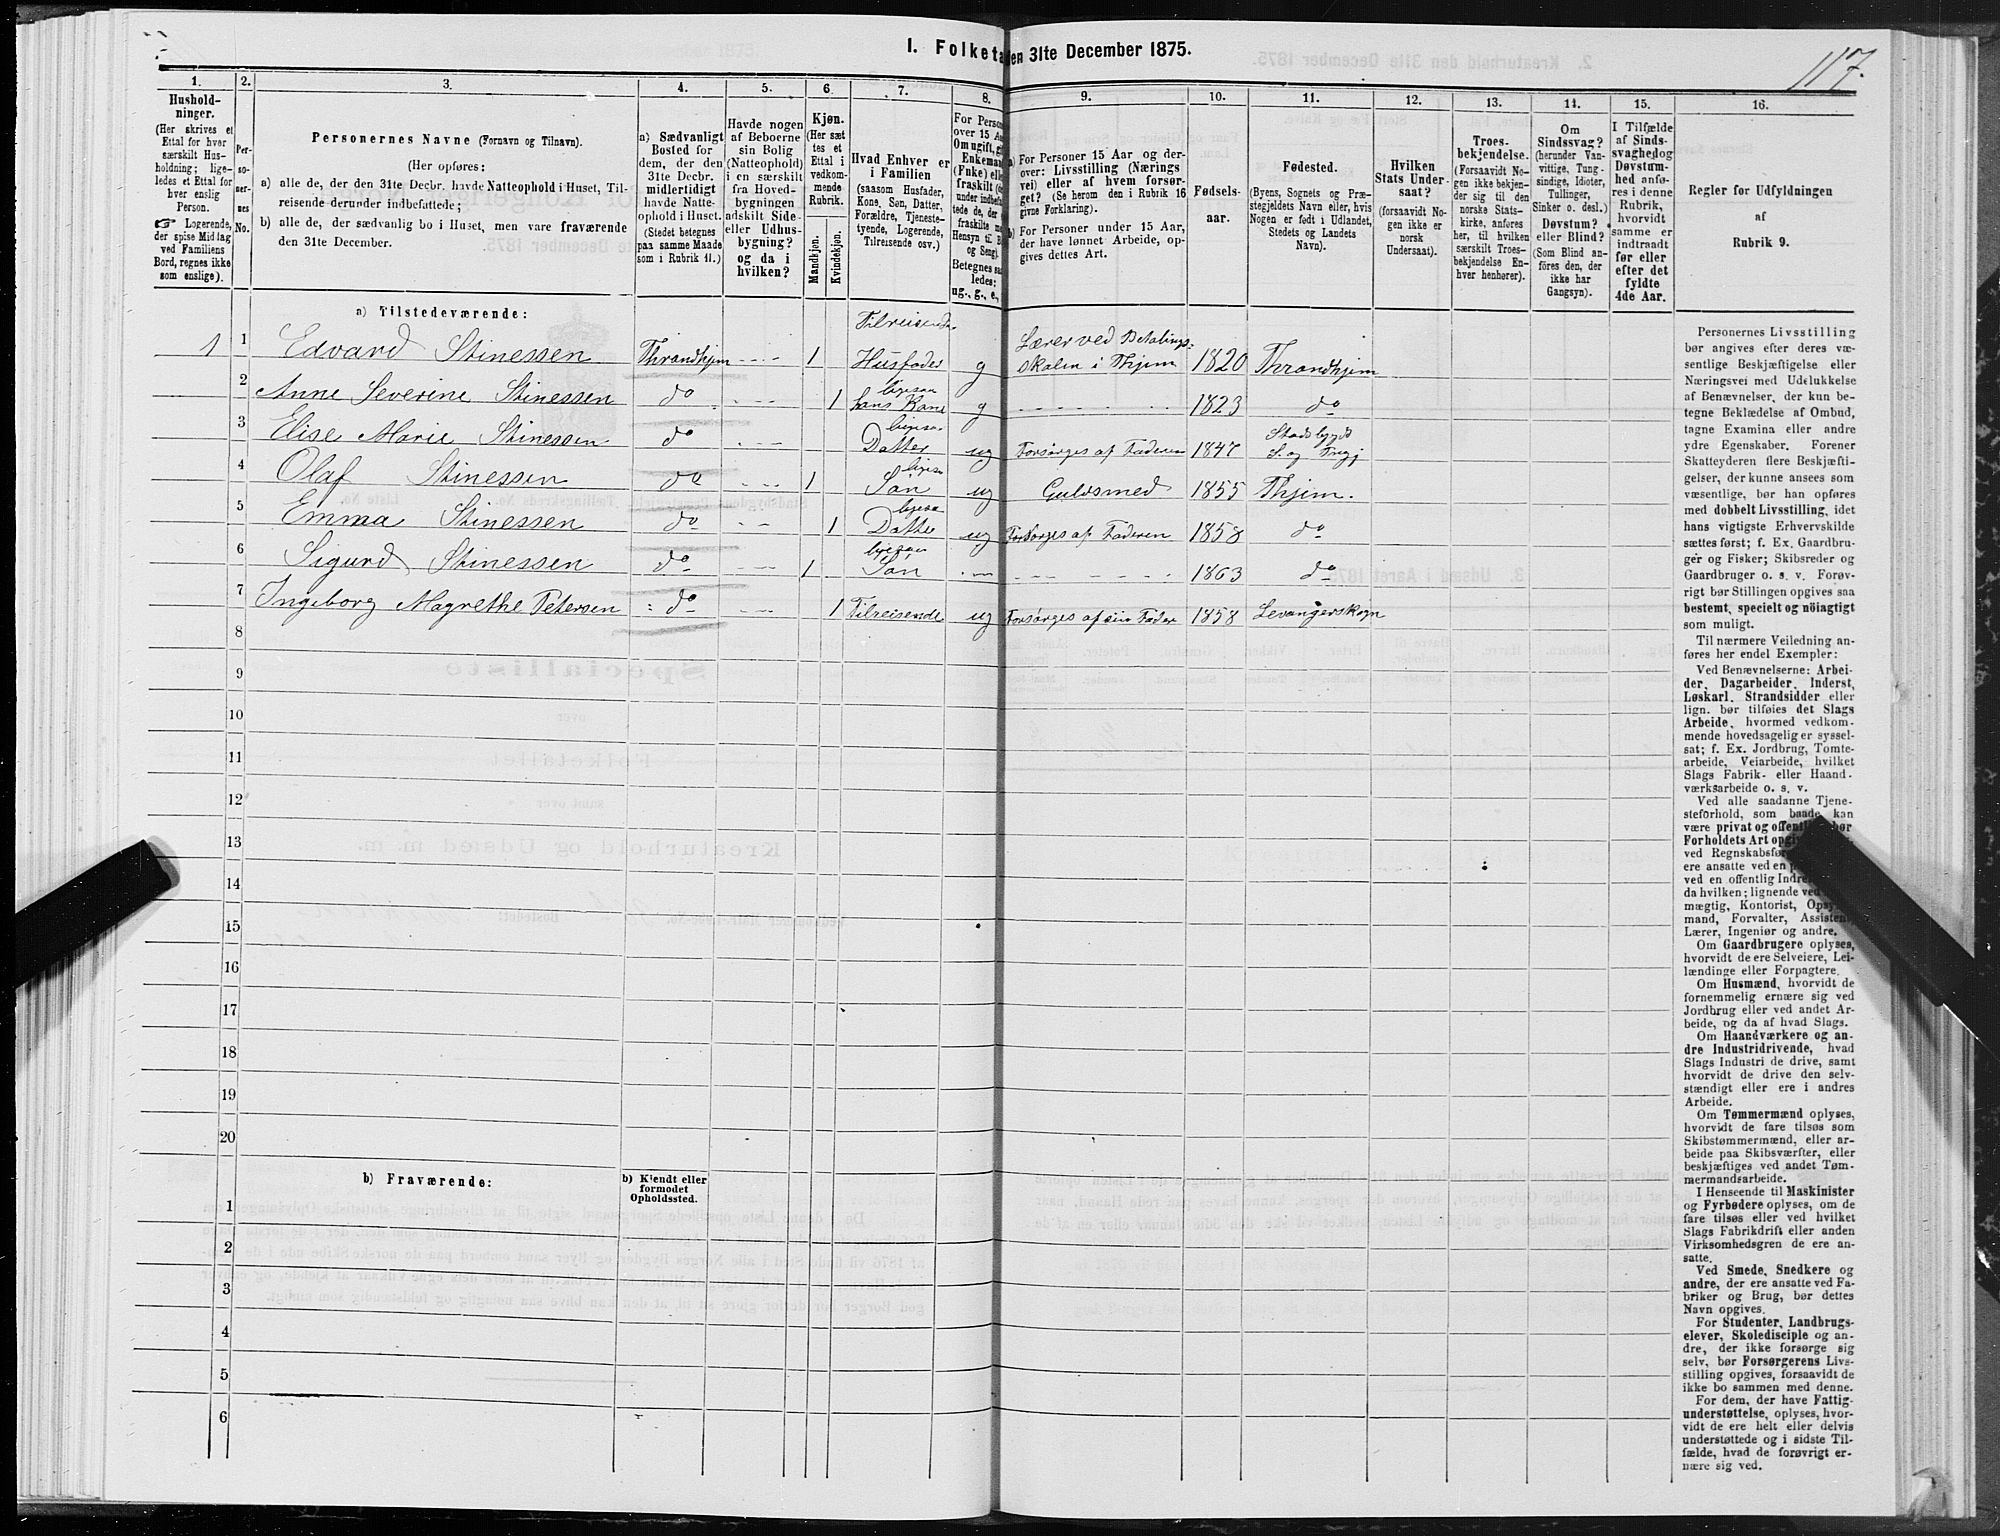 I. Folketa en 31te December 1875.
117.
1.
2.
3.
4.
5.
6.
7.
8.
9.
10.
11.
12.
13.
14.
15.
16.
Hushold-
ninger.
(Her skrives et
Ettal for hver
særskilt Hus-
holdning; lige-
ledes et Ettal for
hver enslig
Person.
☞ Logerende,
der spise Middag
ved Familiens
Bord, regnes ikke
som enslige).
Per-
so-
ner-
nes
No.
Personernes Navne (Fornavn og Tilnavn).
(Her opføres:
a) alle de, der den 31te Decbr. havde Natteophold i Huset, Til-
reisende derunder indbefattede;
b) alle de, der sædvanlig bo i Huset, men vare fraværende
den 31te December.
a) Sædvanligt
Bosted for
dem, der den
31te Decbr.
midlertidigt
havde Natte-
ophold i Huset.
(Stedet betegnes
paa samme Maade
som i Rubrik 11.)
Havde nogen
af Beboerne
sin Bolig
(Natteophold)
i en særskilt
fra Hoved-
bygningen
adskilt Side-
eller Udhus-
bygning?
og da i
hvilken?
Kjøn.
(Her sæt
tes et
Ettal i
vedkom-
mende
Rubrik.
Mandkjøn.
Kvindekjøn.
Hvad Enhver er
i Familien
(saasom Husfader,
Kone, Søn, Datter,
Forældre, Tjeneste-
tyende, Logerende,
Tilreisende osv.)
For Person
over 15 Aa
Om ugift, gi
Enkemand
(Enke) elle
fraskilt (
under indbefat
tede de, der
fraskilte m
Hensyn til B
og Seng).
Betegnes saa
ledes:
ug., g., e.,
a) For Personer 15 Aar og der-
over: Livsstilling (Nærings
vei) eller af hvem forsør-
get? (Se herom den i Rubrik 16
givne Forklaring).
b) For Personer under 15 Aar,
der have lønnet Arbeide, op-
gives dettes Art.
Fødsels-
aar.
Fødested.
(Byens, Sognets og Præ-
stegjeldets Navn eller, hvis
Nogen er født i Udlandet,
Stedets og Landets
Navn).
Hvilken
Stats Under-
saat?
(forsaavidt No-
gen ikke er
norsk
Undersaat).
Troes-
bekjendelse.
(Forsaavidt No-
gen ikke bekjen-
der sig til den
norske Stats-
kirke, anføres
her, til hvilken
særskilt Troes-
bekjendelse En-
hver henhører).
Om
Sindssvag?
(herunder Van-
vittige, Tung-
sindige, Idioter,
Tullinger,
Sinker o. desl.)
Døvstum?
eller Blind?
(Som Blind an-
føres den, der
ikke har
Gangsyn).
I Tilfælde
af Sinds-
svaghed og
Døvstum-
hed anfø-
res i denne
Rubrik,
hvorvidt
samme er
indtraadt
før eller
efter det
fyldte
4de Aar.
Regler for Udfyldningen
af
Rubrik 9.
a) Tilstedeværende:
1 1 Edvard Stinessen Thrandhjem 1 Tilreisende Husfader g Lærer ved Betalings- skolen i Thjem 1820 Thrandhjem
2 Anne Severine Stinessen do 1 ligesaa hans Kone g 1823 do
3 Elise Marie Stinessen do ligesaa Datter ug Forsørges af Faderen 1847 Stadsbygd S. og
4 Olaf Stinessen do 1 ligesaa Søn ug Guldsmed 1855 Thjem.
5 Emma Stinessen do 1 ligesaa Datter ug Forsørges af Faderen 1858 do
6 Sigurd Stinessen do 1 ligesaa Søn 1863 do
7 Ingeborg Magrethe Petersen do 1 Tilreisende ug Forsørges af sin Fader 1858 Levangerskogn
8
9
10
11
12
13
14
15
16
17
18
19
20
b) Fraværende:
b) Kjendt eller
formodet
Opholdssted.
1
2
3
4
5
6
Personernes Livsstilling
bør angives efter deres væ-
sentlige Beskjæftigelse eller
Næringsvei med Udelukkelse
af Benævnelser, der kun be-
tegne Beklædelse af Ombud,
tagne Examina eller andre
ydre Egenskaber. Forener
Skatteyderen flere Beskjæfti-
gelser, der kunne ansees som
væsentlige, bør han opføres
med dobbelt Livsstilling, idet
hans vigtigste Erhvervskilde
sættes først; f. Ex. Gaardbru-
ger og Fisker; Skibsreder og
Gaardbruger o. s. v. Forøv-
rigt bør Stillingen opgives saa
bestemt, specielt og nöiagtigt
som muligt.
Til nærmere Veiledning an-
føres her endel Exempler:
Ved Benævnelserne: Arbei-
der, Dagarbeider, Inderst,
Løskarl, Strandsidder eller
lign. bør tilføies det Slags
Arbeide, hvormed vedkom-
mende hovedsagelig er syssel-
sat; f. Ex. Jordbrug, Tomte-
arbeide, Veiarbeide, hvilket
Slags Fabrik- eller Haand-
værksarbeide o. s. v.
Ved alle saadanne Tjene-
steforhold, som baade kan
være privat og offentlig, bør
Forholdets Art opgiv
ved Regnskabsfør
ere ansatte ved en p
ved en offentlig Indre
da hvilken; lignende ved
mægtig, Kontorist, Opsy
mand, Forvalter, Assistent,
Lærer, Ingeniør og andre.
Om Gaardbrugere oplyses,
hvorvidt de ere Selveiere, Lei-
lændinge eller Forpagtere.
Om Husmænd, hvorvidt de
fornemmelig ernære sig ved
Jordbrug eller ved andet Ar-
beide, og da af hvad Slags.
Om Haandværkere og an-
dre Industridrivende, hvad
Slags Industri de drive, samt
hvorvidt de drive den selv-
stændigt eller ere i andres
Arbeide.
Om Tømmermænd oplyses,
hvorvidt de fare tilsøs som
Skibstømmermænd, eller ar-
beide paa Skibsværfter, eller
beskjæftiges ved andet Tøm-
mermandsarbeide.
I Henseende til Maskinister
og Fyrbødere oplyses, om de
fare tilsøs eller ved hvilket
Slags Fabrikdrift eller anden
Virksomhedsgren de ere an-
satte.
Ved Smede, Snedkere og
andre, der ere ansatte ved Fa-
briker og Brug, bør dettes
Navn opgives.
For Studenter, Landbrugs-
elever, Skoledisciple og an-
dre, der ikke forsørge sig
selv, bør Forsørgerens Livs-
stilling opgives, forsaavidt de
ikke bo sammen med denne.
For dem, der have Fattig-
understøttelse, oplyses, hvor-
vidt de ere helt eller delvis
understøttede og i sidste Til-
fælde, hvad de forøvrigt er-
nære sig ved.